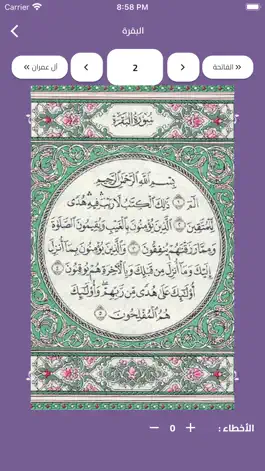 Carrier 8:58 PM
البقرة
الفاتحة »
2
« آل عمران
سورة البقرة
بسم الله الرحمن الرحيم
الم ١ ذلك الكتاب لا ريب فيه هدى
للمتقين ٢ الذين يؤمنون بالغيب ويقيمون الصلاة
ومما رزقناهم ينفقون ٣ والذين يؤمنون بما أنزل
إليك وما أنزل من قبلك وبالآخرة هم يوقنون ٤
أولئك على هدى من ربهم وأولئك
هم المفلحون ٥
الأخطاء : + 0 −